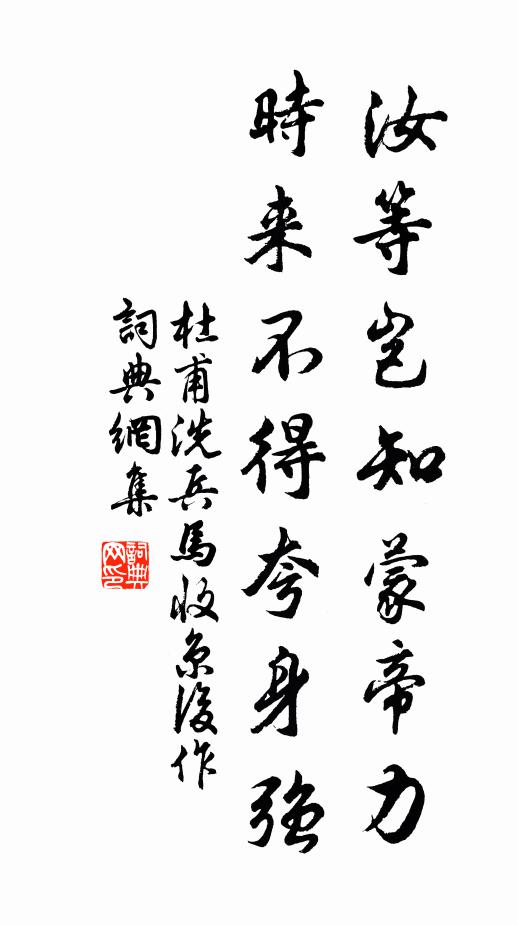 汝等豈知蒙帝力
時来不得夸身強
杜甫洗兵馬收京後作
詞典網集
詞典網印